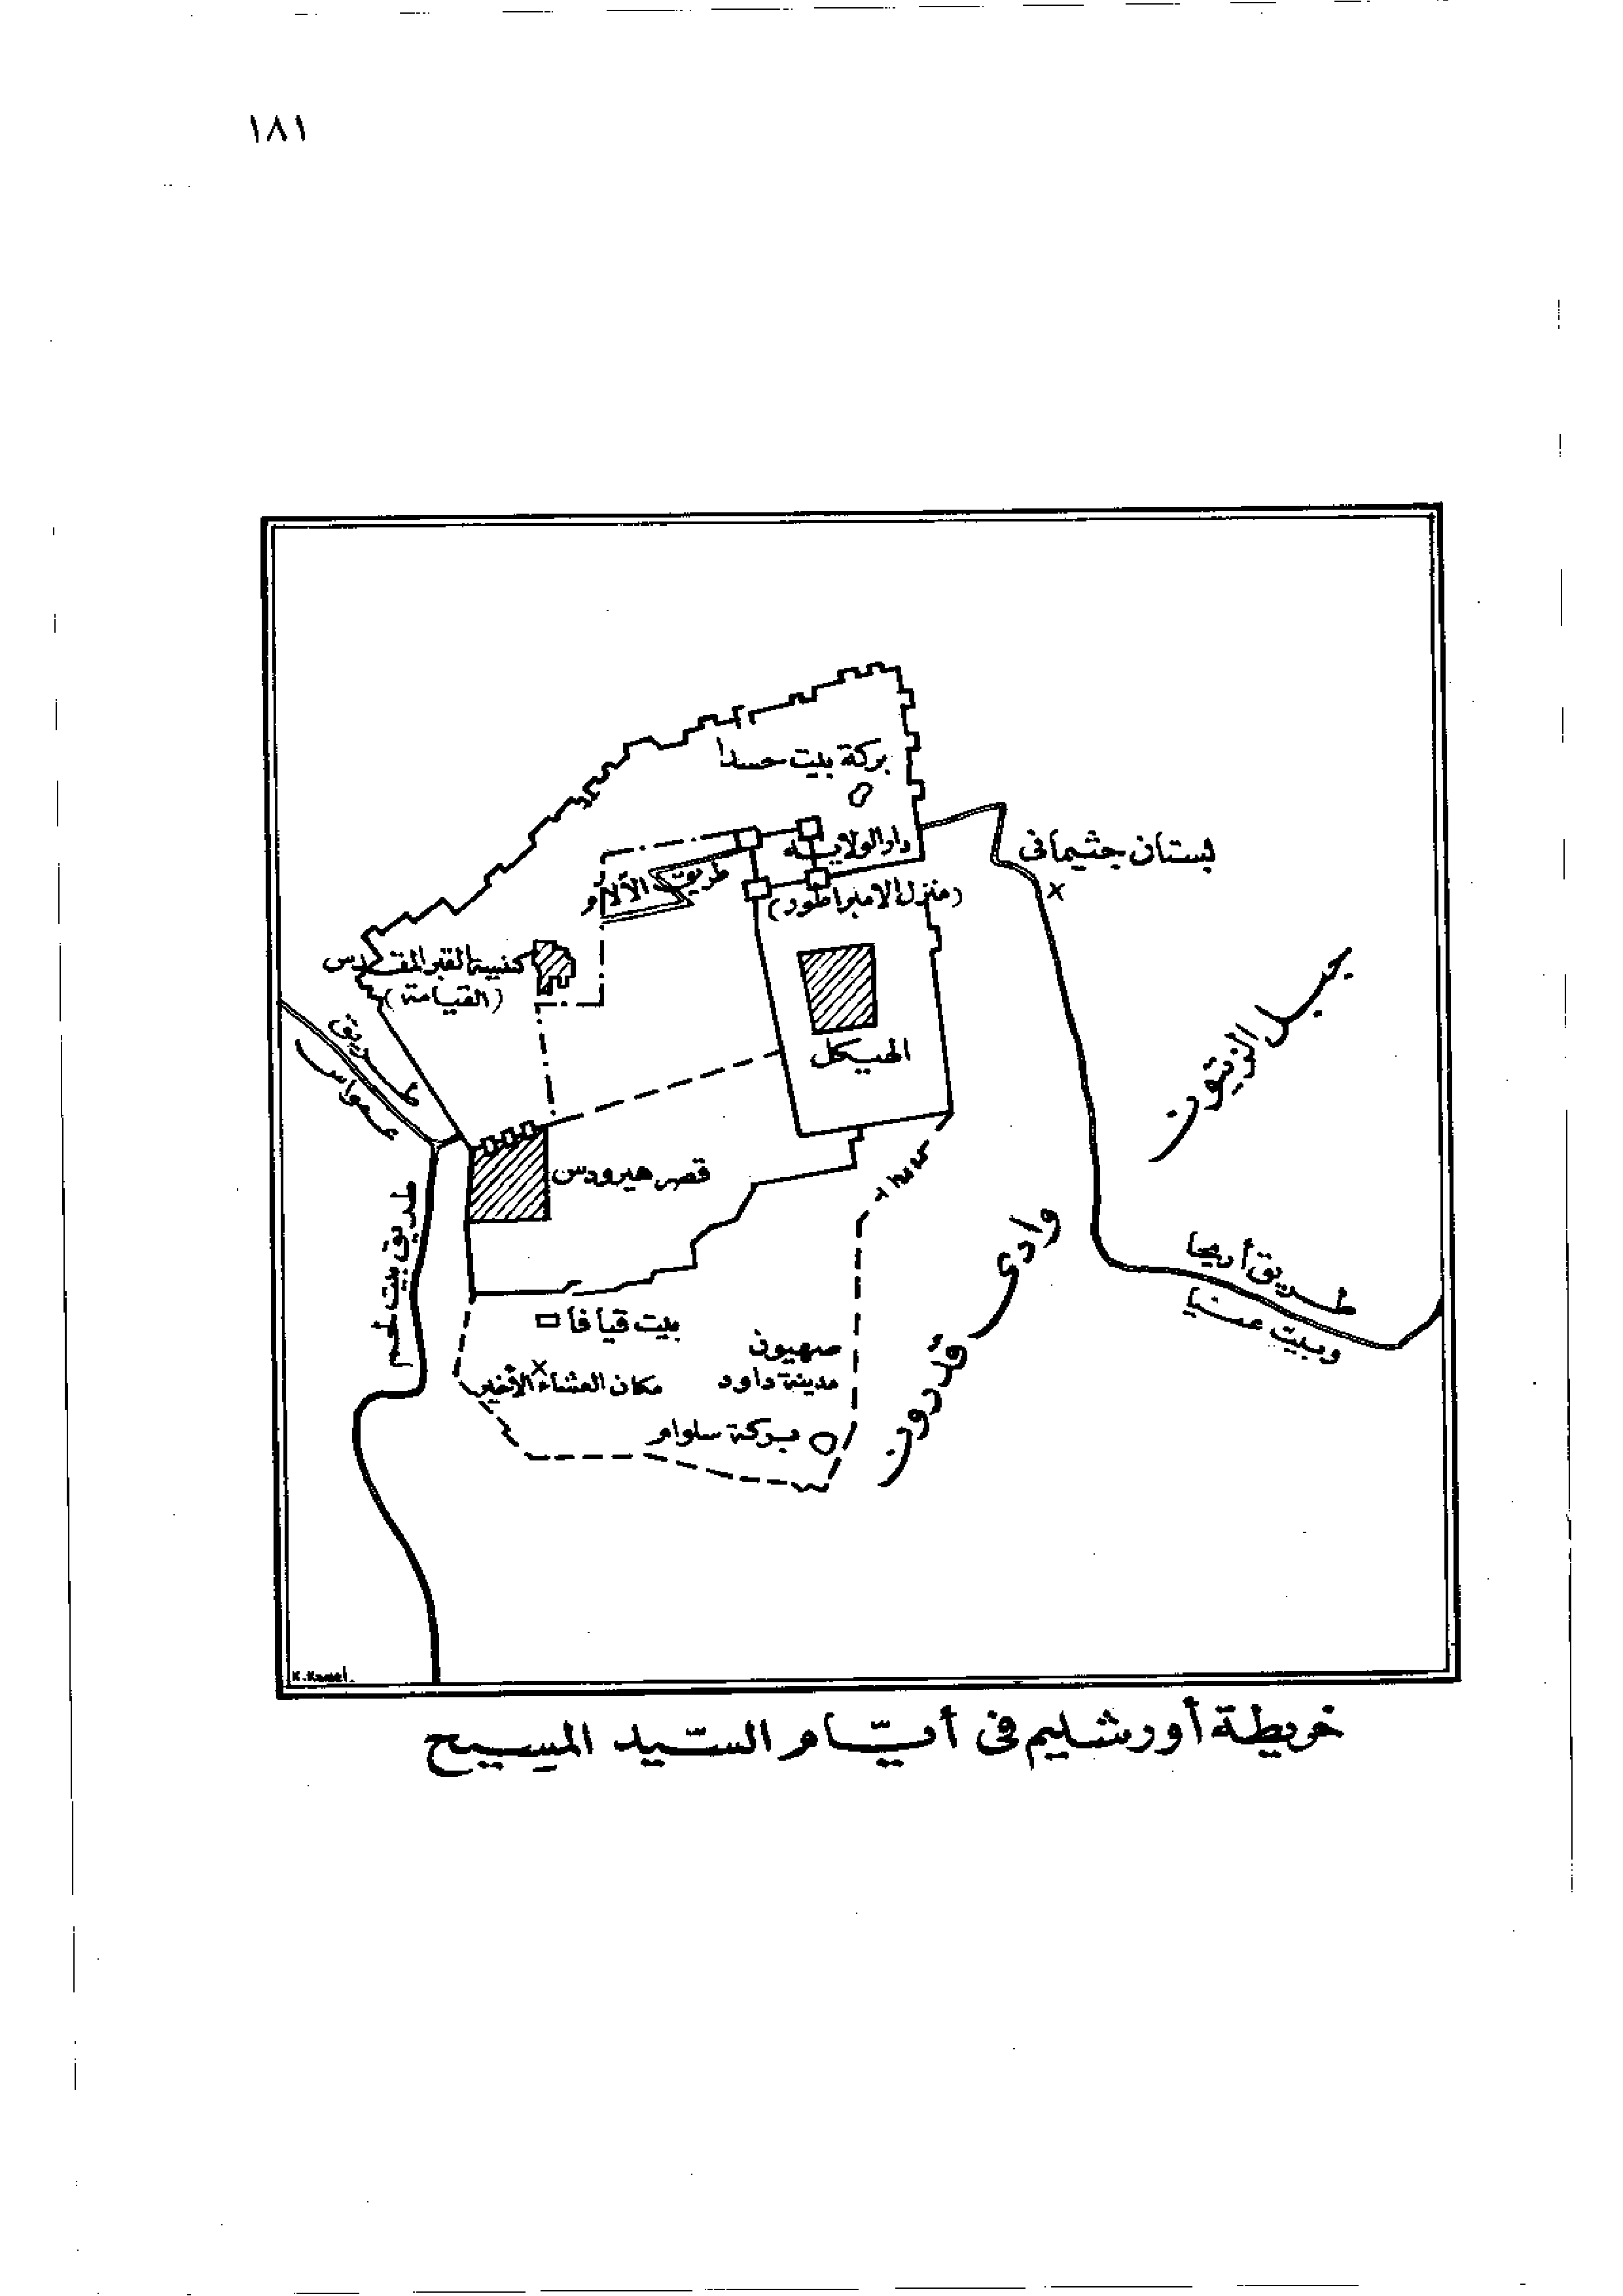 ١٨١
بركة بيت حسدا
دار الولاية
(منزل الامبراطور)
بستان جثيمانى
طريق الآلام
كنيسة القبر المقدس
(القيامة)
الهيكل
جبل الزيتون
طريق
عمواس
قصر هيرودس
طريق بيت لحم
وادى قدرون
طريق أريحا
وبيت عنيا
بيت قيافا
صهيون
مدينة داود
مكان العشاء الأخير
بركة سلوام
K. Kamel.
خريطة أورشليم فى أيّام السّيد المسيح